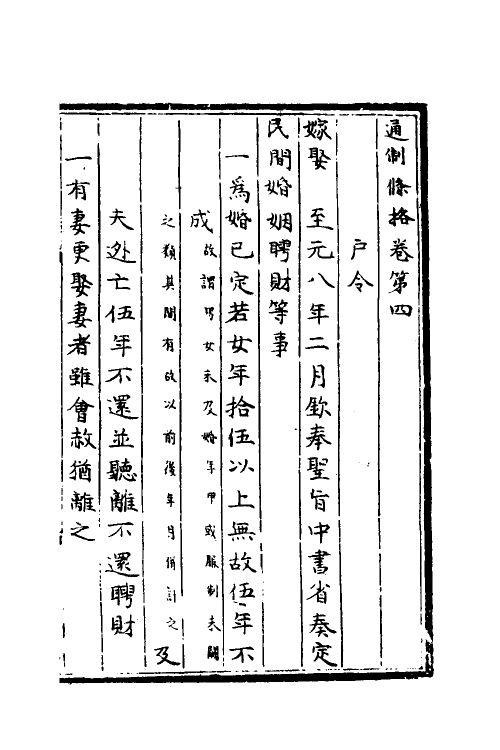 通制條格卷第四
户令
嫁娶 至元八年二月欽奉聖旨中書省奏定
民間婚姻聘財等事
一爲婚已定若女年拾伍以上無故伍年不
成故謂男女未及婚年甲或服制未闋
之類其間有故以前後年月併計之及
夫逃亡伍年不還並聽離不還聘財
一有妻更娶妻者雖會赦猶離之